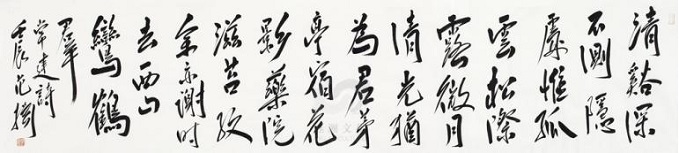 清谿深
不測隱
處惟孤
雲松際
露微月
清光猶
為君茅
亭宿花
影藥院
滋苔紋
余亦謝时
去西山
鸞鶴
羣
常建詩
壬辰范